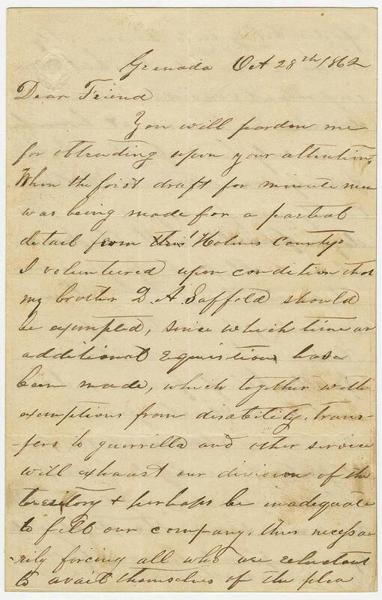 Grenada Oct 28th 1862
Dear Friend
You will pardon me
for obtruding upon your attention,
When the first draft for minute men
was being made for a partial
detail from Holmes County
I volunteered upon condition that
my brother D. A Saffold should
be exempted, since which time an
additional equisition has
been made, which together with
exemptions from disability, trans-
-fers to guerrilla and other service
will exhaust our division of the
territory & perhaps be inadequate
to fill our company, thus necessa-
-rily forcing all who are reluctant
to avail themselves of the plea